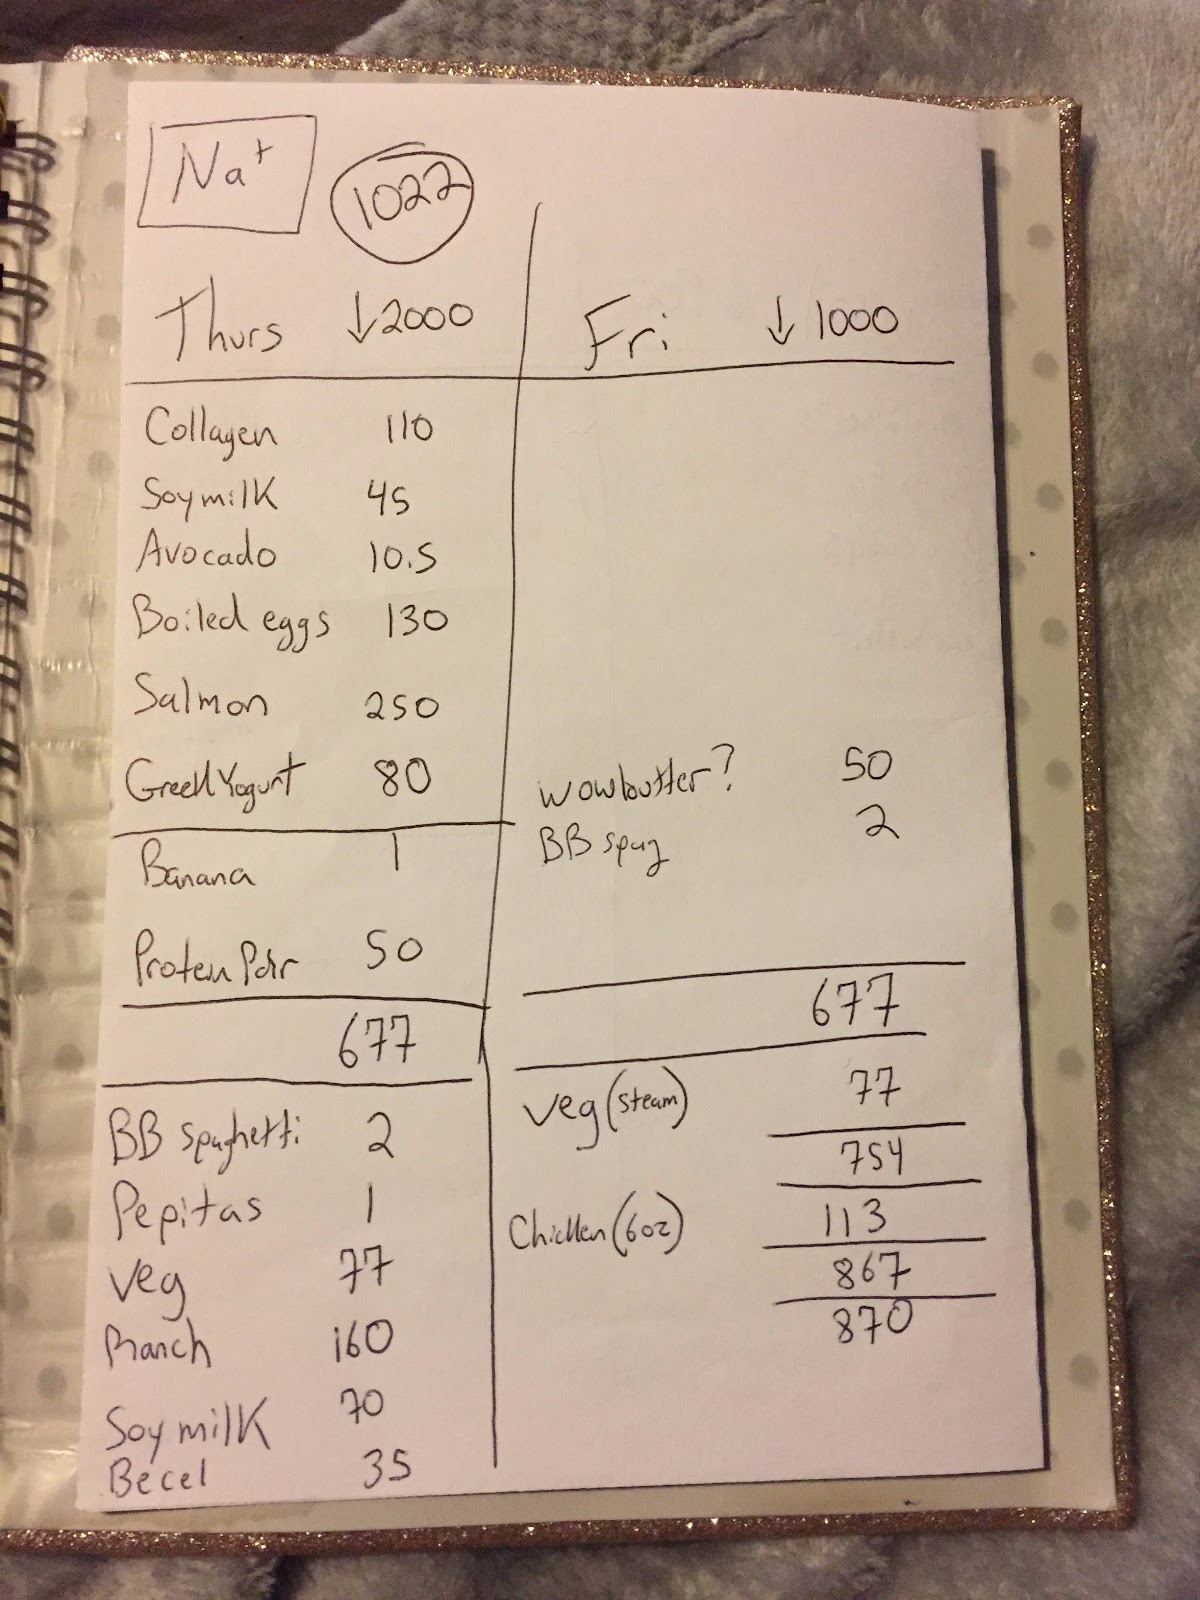 Na+ 1022
Thurs ↓2000
Collagen 110
Soymilk 45
Avocado 10.5
Boiled eggs 130
Salmon 250
Greek Yogurt 80
Banana 1
Protein Pdr 50
677
BB spaghetti 2
Pepitas 1
Veg 77
Ranch 160
Soy milk 70
Becel 35
Fri ↓1000
wowbutter? 50
BB spag 2
677
Veg (steam) 77
754
Chicken (6oz) 113
867
870